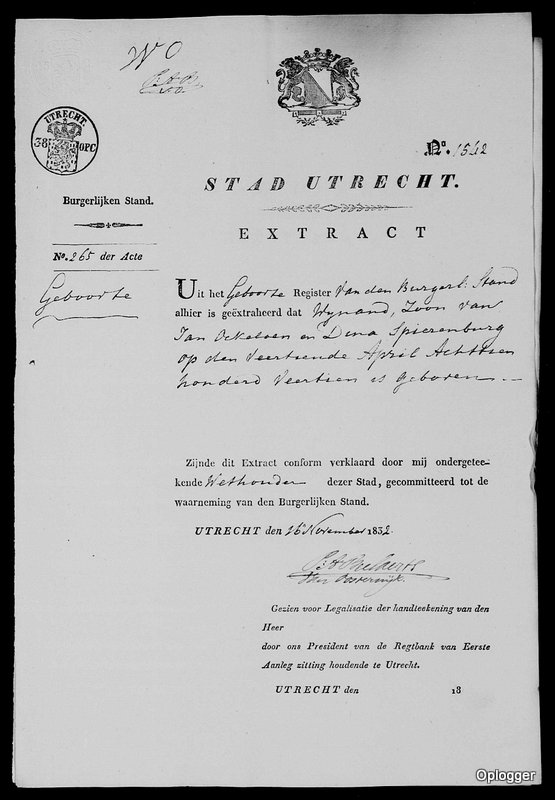 WO
UTRECHT.
38 OPC
No. 1542
STAD UTRECHT.
Burgerlijken Stand.
EXTRACT
No. 265 der Acte
Geboorte
Uit het Geboorte Register Van den Burgerl: Stand
alhier is geëxtraheerd dat Wynand, Zoon van
Jan Ockeloen en Dina Spierenburg
op den Veertiende April Achttien
honderd Veertien is geboren.
Zijnde dit Extract conform verklaard door mij ondergetee-
kende Wethouder dezer Stad, gecommitteerd tot de
waarneming van den Burgerlijken Stand.
UTRECHT den 16 November 1832
van Oosterwijk.
Gezien voor Legalisatie der handteekening van den
Heer
door ons President van de Regtbank van Eerste
Aanleg zitting houdende te Utrecht.
UTRECHT den 18
Oplogger